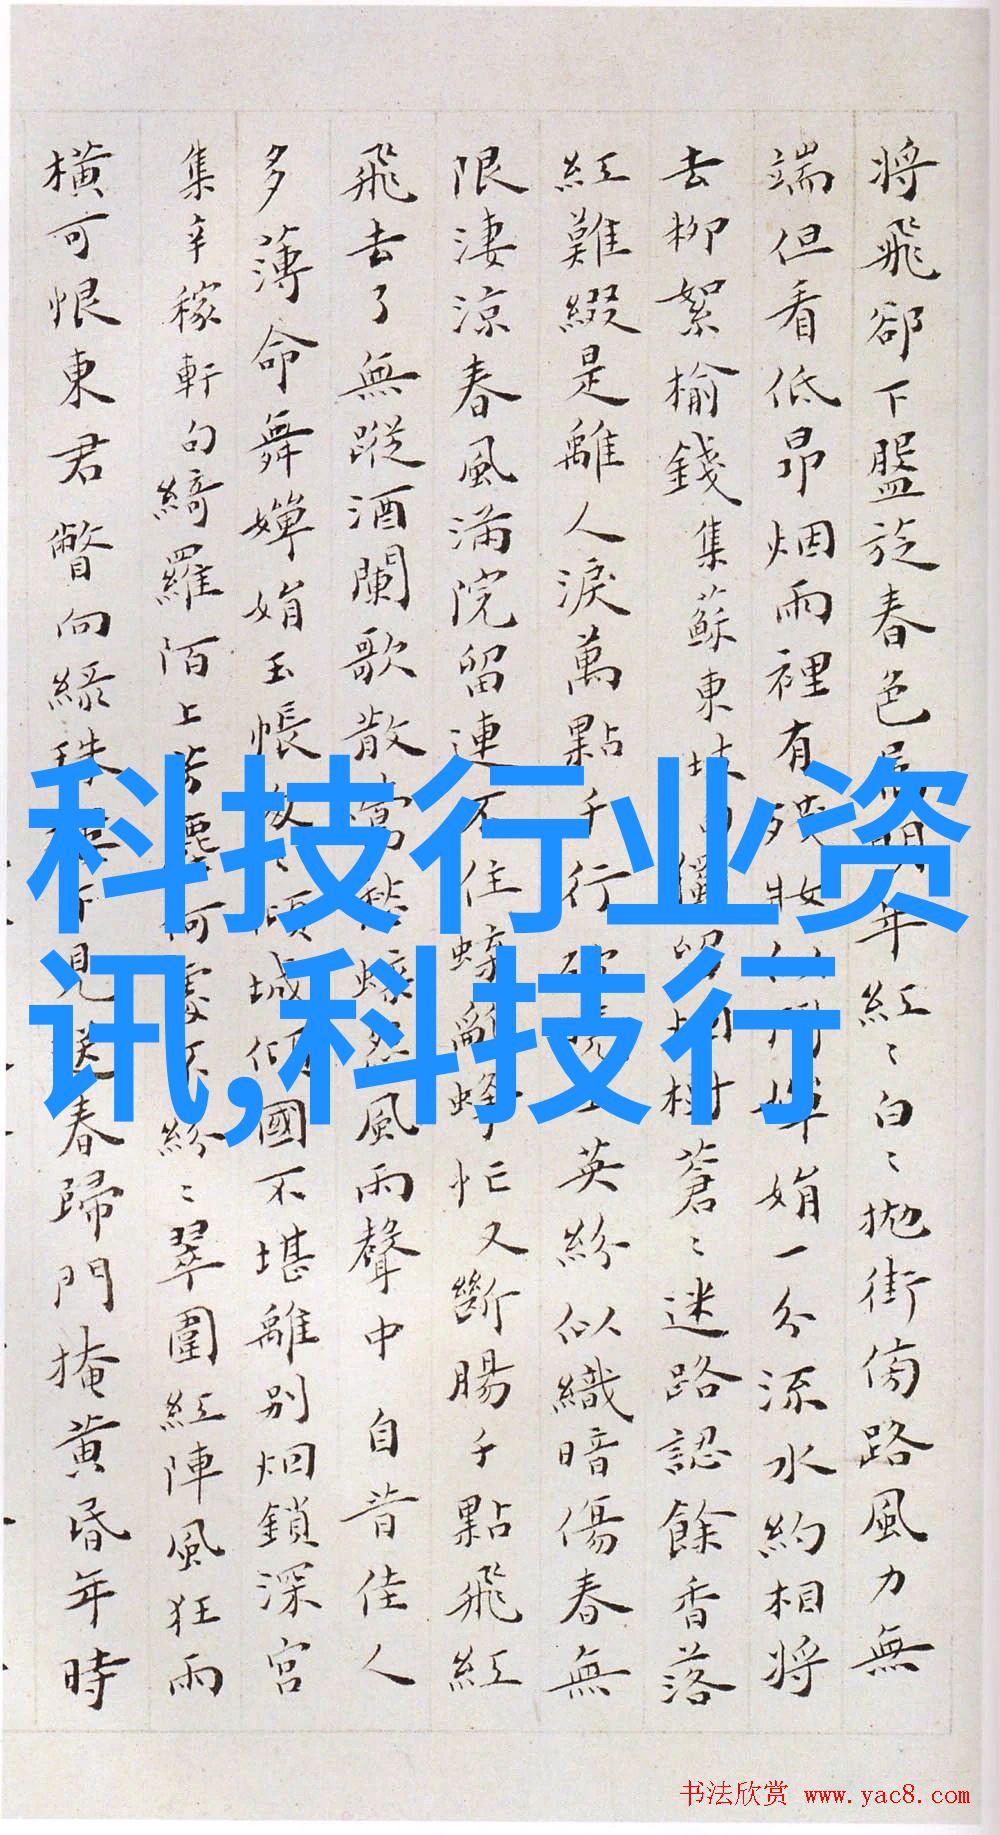 将飛卻下盤旋春色屬明年紅〻白〻拋街傍路風力無
端但看低昂烟雨裡有殘妝似閒婵娟一分流水約相將
去柳絮榆錢集蘇東坡句
蒼〻迷路認餘香落
紅難綴是離人淚萬點千行
英紛似織暗傷春無
限淒涼春風滿院留連不住蜂
忙又斷腸千點飛紅
飛去了無蹤酒闌歌散
風雨聲中 自昔佳人
多薄命舞嬋娟玉帳
傾城傾國不堪離別烟鎖深宮
集辛稼軒句綺羅陌上芳塵何處不紛〻翠圍紅陣風狂雨
横可恨東君瞥向緑珠
見送春歸門掩黄昏年時
科技行业资
讯,科技行
书法欣赏 www.yac8.com